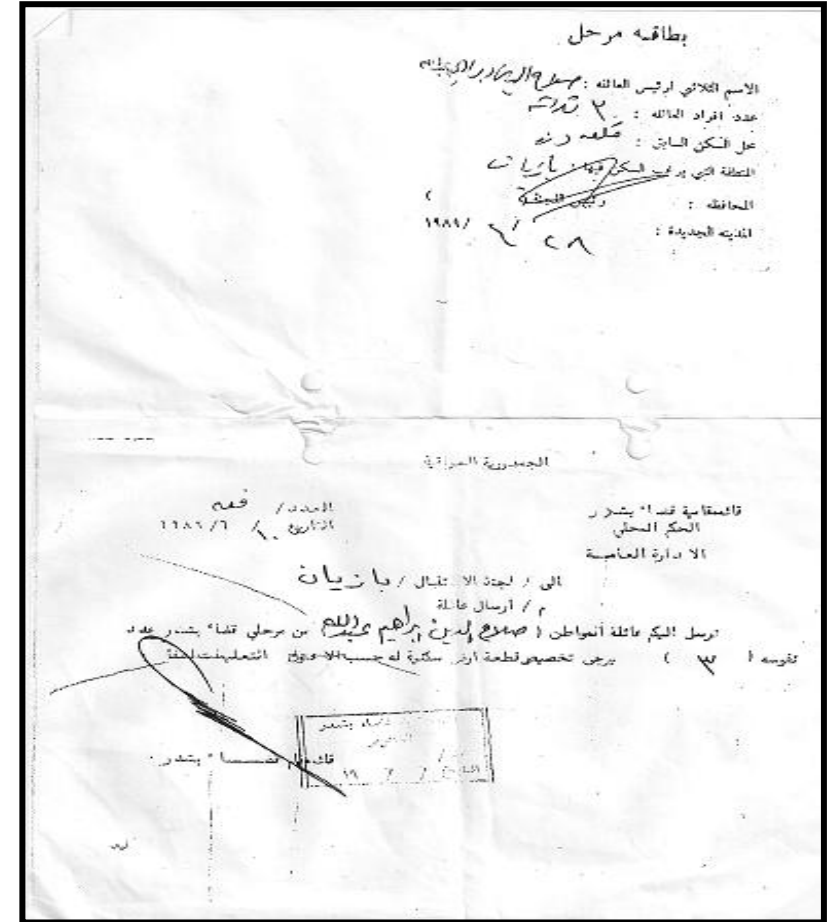 بطاقه مرحل
الاسم الثلاثي لرئيس العائله : صلاح الدين ابراهيم عبدالله
عدد افراد العائله : ٣ ثلاثه
محل السكن السابق : قلعه دزه
المنطقة التي يرغب السكن فيها : بازيان
المحافظه :
المدينه الجديدة :
٢٨ / ٦ /١٩٨٩
الجمهورية العراقية
قائممقامية قضاء بشدر
العدد/
الحكم المحلي
التاريخ ١٠/٦/١٩٨٩
الادارة العامة
الى / لجنة الاستقبال / بازيان
م / ارسال عائلة
نرسل اليكم عائلة المواطن ( صلاح الدين ابراهيم عبدالله ) من مرحلي قضاء بشدر عدد
نفوسه ( ٣ ) يرجى تخصيص قطعة ارض سكنية له حسب التعليمات
قضاء بشدر
١٩ / /
قائممقام قضاء بشدر